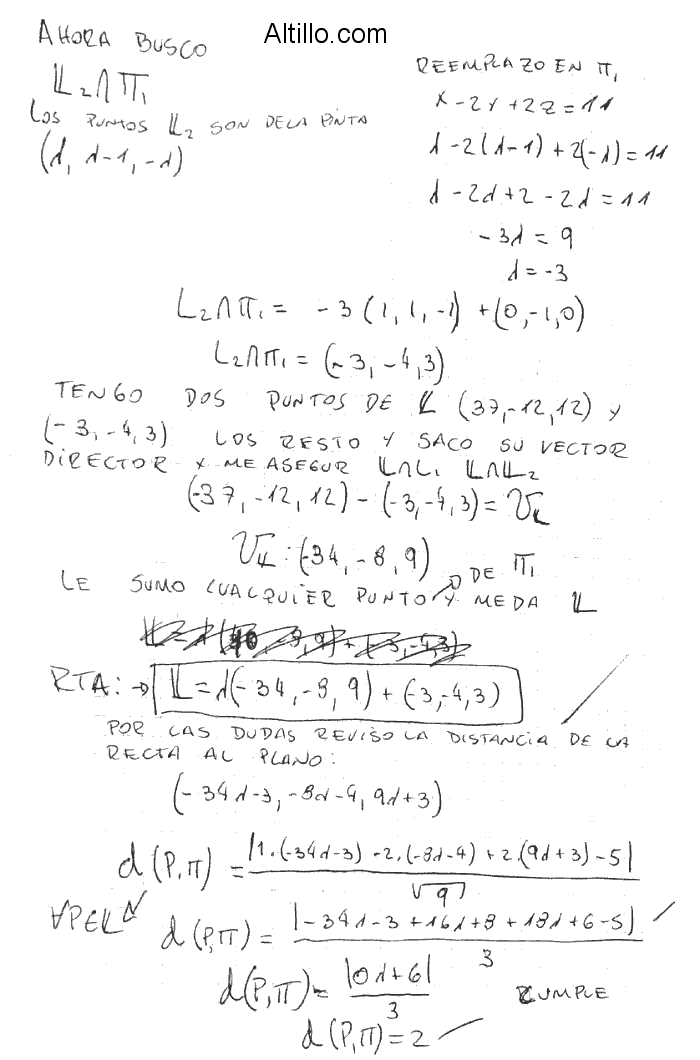 Altillo.com
AHORA BUSCO
𝕃₂∩π₁
LOS PUNTOS 𝕃₂ SON DE LA PINTA
(λ, λ-1, -λ)
REEMPLAZO EN π₁
x-2y+2z=11
λ-2(λ-1)+2(-λ)=11
λ-2λ+2-2λ=11
-3λ=9
λ=-3
L₂∩π₁= -3(1,1,-1)+(0,-1,0)
L₂∩π₁=(-3,-4,3)
TENGO DOS PUNTOS DE 𝕃 (37,-12,12) y
(-3,-4,3) LOS RESTO Y SACO SU VECTOR
DIRECTOR Y ME ASEGUR 𝕃∩L₁ 𝕃∩𝕃₂
(-37,-12,12)-(-3,-4,3)=V𝕃
V𝕃:(-34,-8,9)
LE SUMO CUALQUIER PUNTO DE π₁ Y ME DA 𝕃
RTA:→ 𝕃=λ(-34,-8,9)+(-3,-4,3)
POR LAS DUDAS REVISO LA DISTANCIA DE LA
RECTA AL PLANO:
(-34λ-3,-8λ-4,9λ+3)
d(P,π)=|1.(-34λ-3)-2.(-8λ-4)+2.(9λ+3)-5|
√9
∀P∈𝕃 d(P,π)=|-34λ-3+16λ+8+18λ+6-5|
3
d(P,π)=|0λ+6| CUMPLE
3
d(P,π)=2